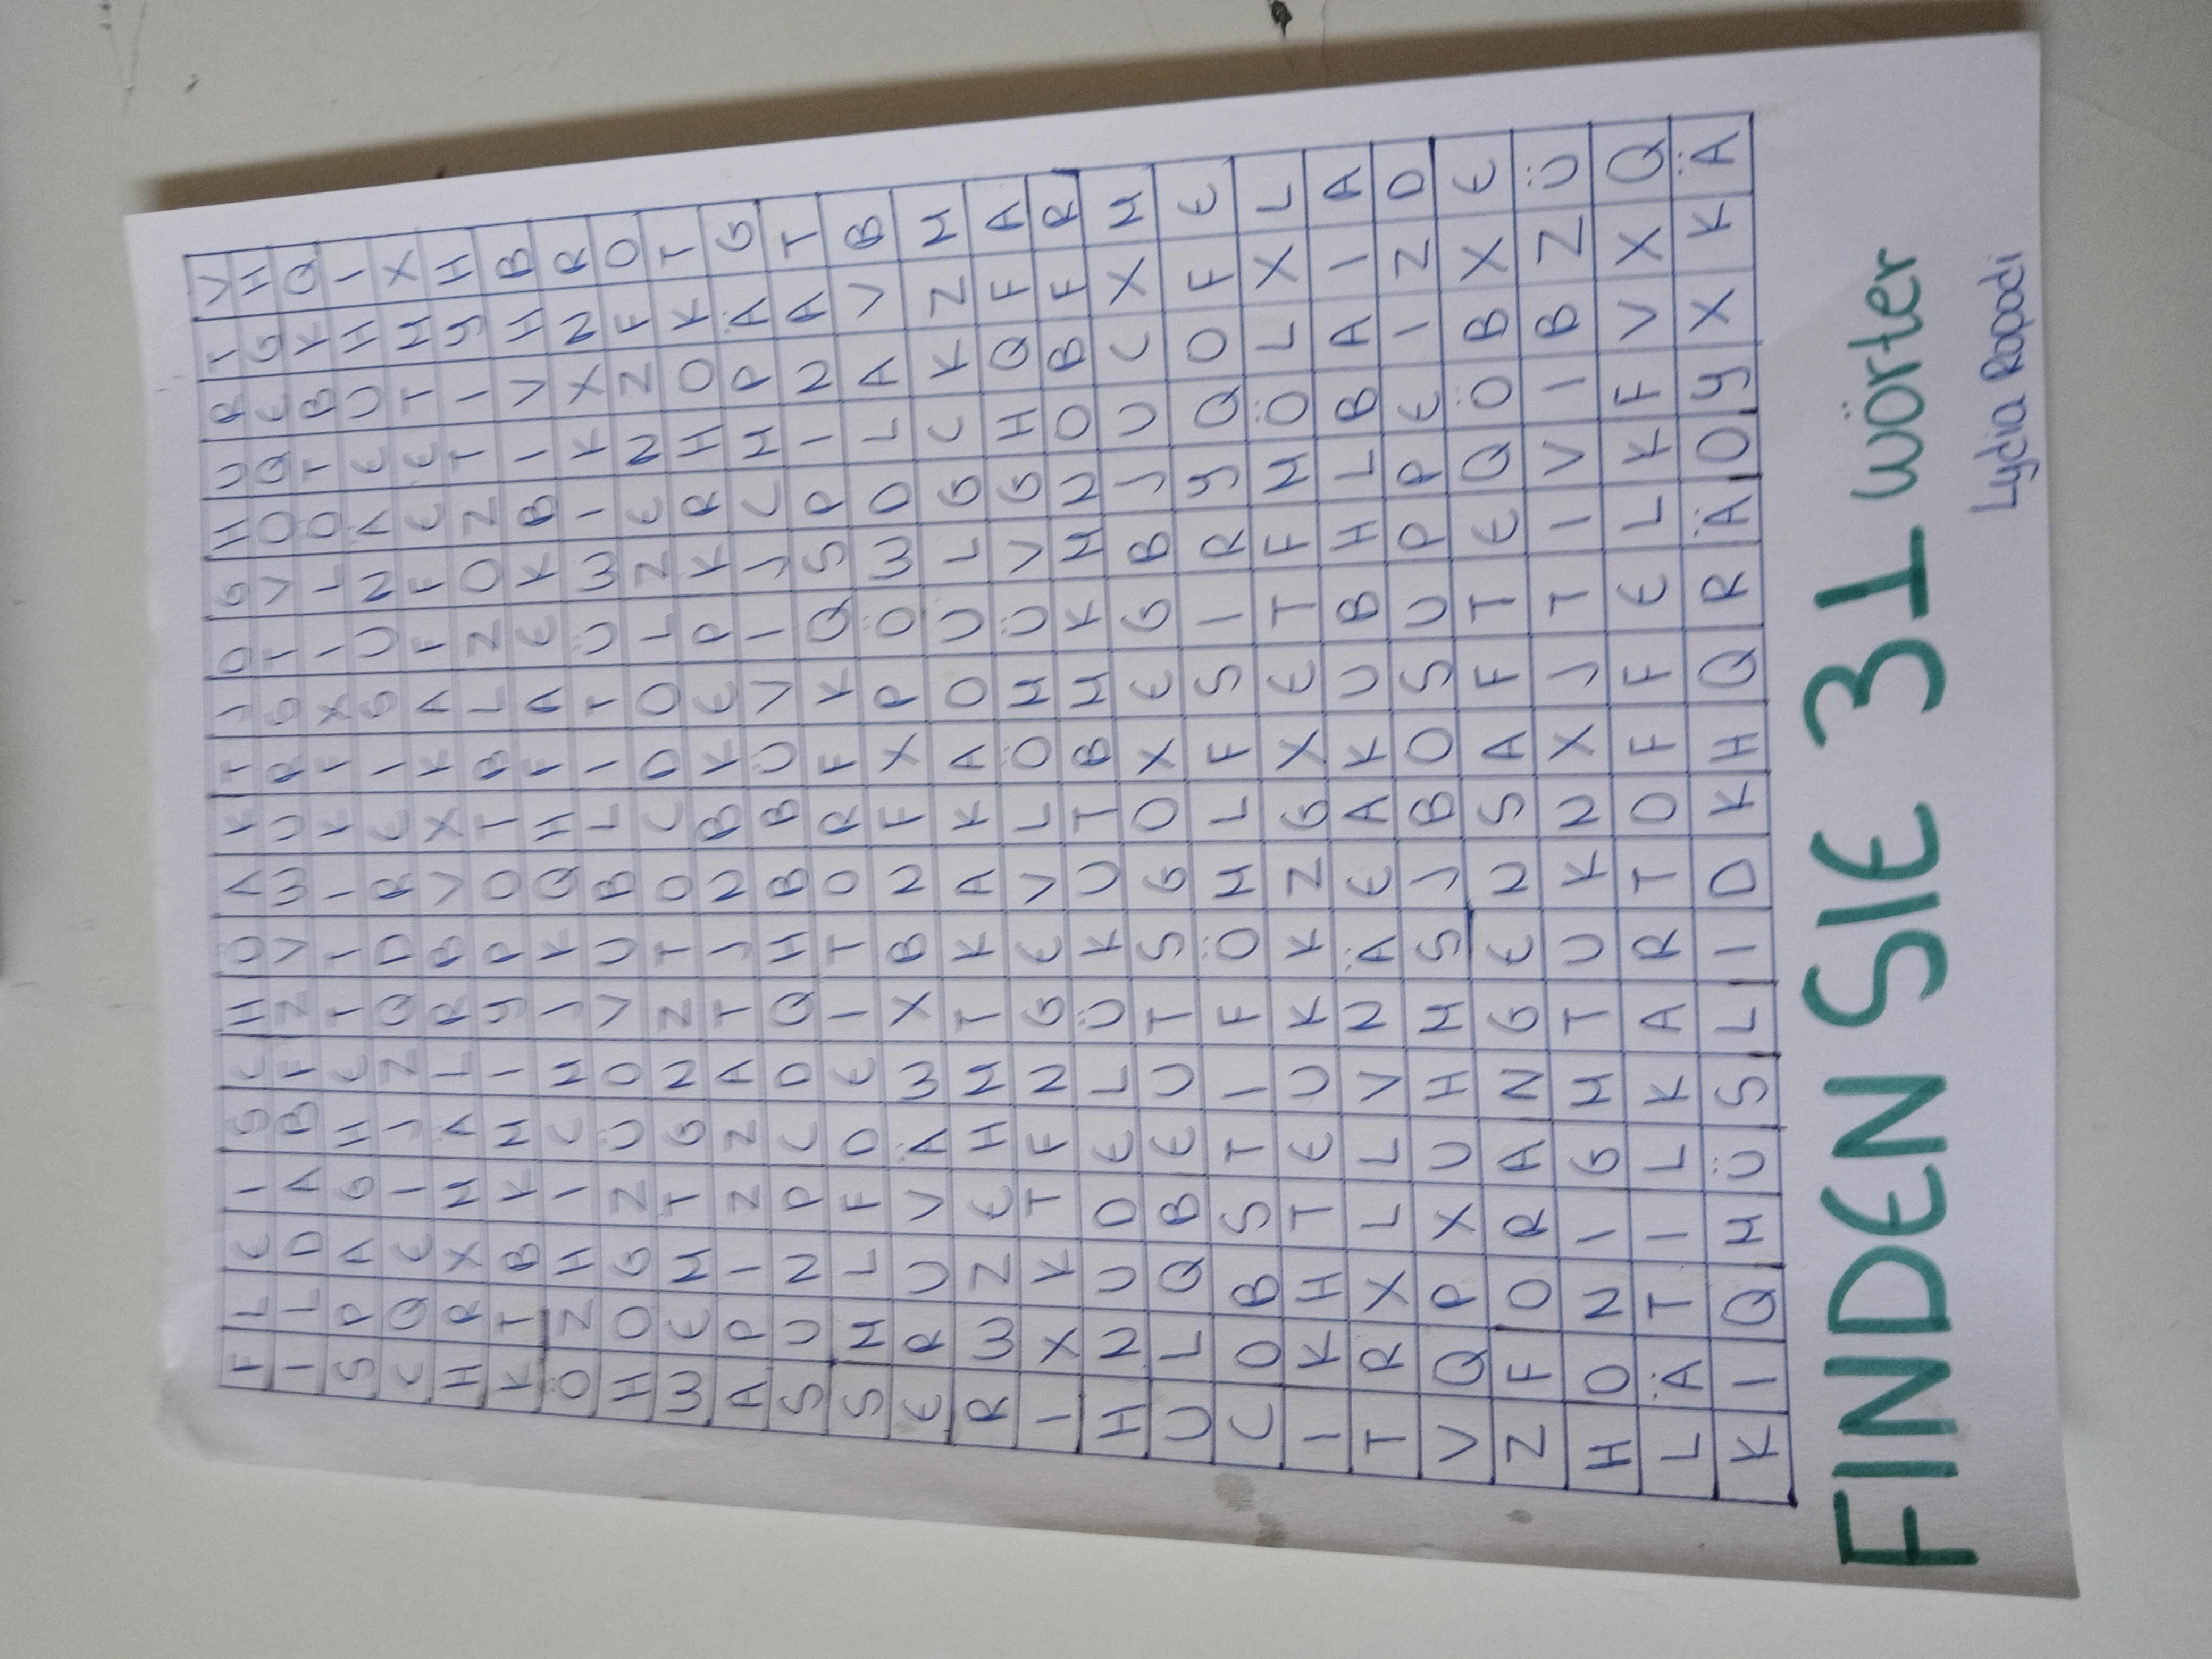 F L E I S C H Ö A K T J D G H U R T V
I L D A B F Z V W U R G T V O Q E G H
S P A G H E T T I K F X I L O T B K Q
C Q E I J Z Q D R E I S U N A E U H I
H R X M A L R B V X K A F F E E T M X
K T B K M I Y P O T B L Z O Z T I Y H
Ö Z H I C M J K Q H F A E K B I V H B
H O G Z Ü O V U B L I T Ü W I K X N R
W E M T G N Z T O C D O L Z E N Z F O
A P I Z Z A T J N B K E P K R H O K T
S U N P C D Q H B B Ü V I J C M P Ä G
S M L F D E I T O R F K Q S P I N A T
E R U V Ä W X B N F X P Ö W D L A V B
R W Z E H M T K A K A O U L G C K Z M
I X K T F N G E V L Ö M Ü V G H Q F A
H N U D E L Ü K U T B M K M N O B F R
U L Q B E U T S G O X E G B J U C X M
C O B S T I F Ö M L F S I R Y Q O F E
I K H T E U K K Z G X E T F M Ö L X L
T R X L L V N Ä E A K U B H L B A I A
V Q P X U H M S J B O S U P P E I Z D
Z F O R A N G E N S A F T E Q Ö B X E
H O N I G M T U K N X J T I V I B Z Ü
L Ä T I L K A R T O F F E L K F V X Q
K I Q M Ü S L I D K H Q R Ä O Y X K Ä
FINDEN SIE 31 wörter
Lydia Rapadi